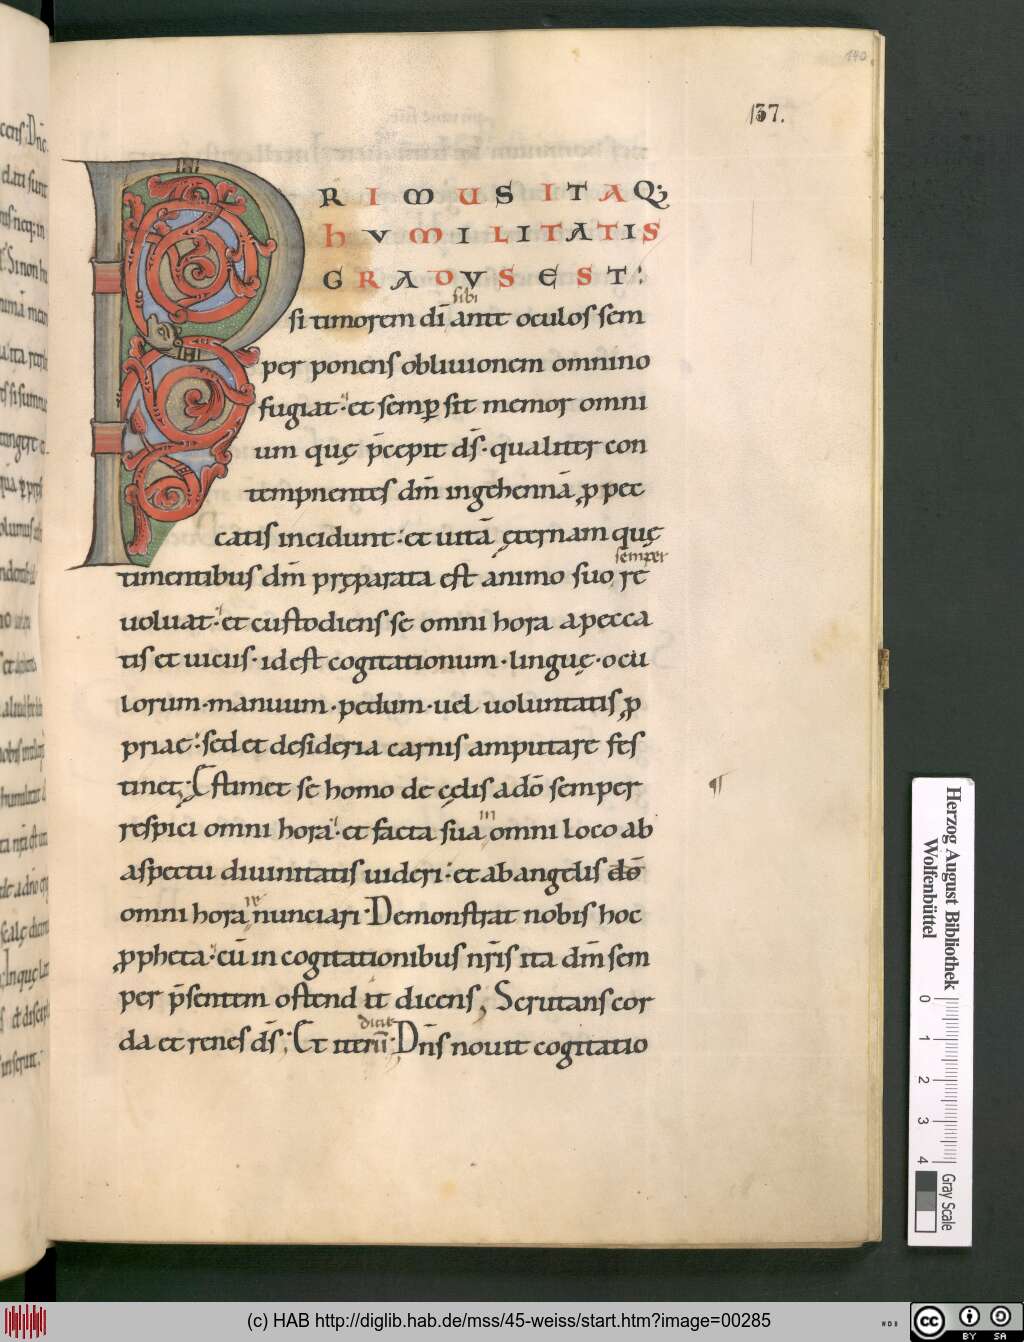 140
137.
PRIMUS ITAQ;
hVMILITATIS
GRADVS EST:
sibi
si timorem dī ante oculos sem
per ponens obliuionem omnino
fugiat· et semꝑ sit memor omni
um quę p̄cepit ds̄· qualiter con
tempnentes dm̄ ingehennā, ꝓ pec
catis incidunt· et uitā ęternam quę
semper
timentibus dm̄ pręparata est animo suo, re
uoluat· et custodiens se omni hora apecca
tis et uiciis· idest cogitationum· linguę· ocu
lorum· manuum· pedum· uel uoluntatis, ꝓ
priae· sed et desideria carnis amputare fes
tinet; Estimet se homo de cęlis adō semper
¶
in
respici omni hora· et facta sua omni loco ab
aspectu diuinitatis uideri· et abangelis dō
omni hora nunciari· Demonstrat nobis hoc
ꝓpheta· cū in cogitationibus nr̄is ita dm̄ sem
per p̄sentem ostendit dicens, Scrutans cor
dicit
da et renes ds̄; Et iterū· Dn̄s nouit cogitatio
Herzog August Bibliothek
Wolfenbüttel
0 1 2 3 4
Gray Scale
(c) HAB http://diglib.hab.de/mss/45-weiss/start.htm?image=00285
cc BY SA